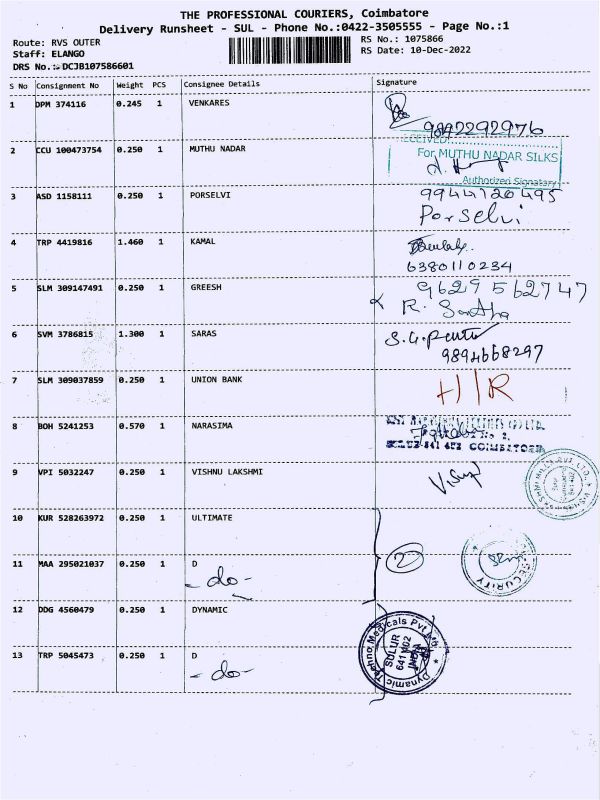 THE PROFESSIONAL COURIERS, Coimbatore
Delivery Runsheet - SUL - Phone No.:0422-3505555 - Page No.:1
Route: RVS OUTER
RS No.: 1075866
Staff: ELANGO
RS Date: 10-Dec-2022
DRS No.:-DCJB107586601
S No Consignment No Weight PCS Consignee Details Signature
1 DPM 374116 0.245 1 VENKARES
9892292976
2 CCU 100473754 0.250 1 MUTHU NADAR
For MUTHU NADAR SILKS
Authorized Signatory
3 ASD 1158111 0.250 1 PORSELVI 9944126495
Porselvi
4 TRP 4419816 1.460 1 KAMAL
6380110234
5 SLM 309147491 0.250 1 GREESH 9629562747
R.
6 SVM 3786815 1.300 1 SARAS S.G.
9894668297
7 SLM 309037859 0.250 1 UNION BANK H/R
8 BOH 5241253 0.570 1 NARASIMA
SULUR-641 402 COIMBATORE
9 VPI 5032247 0.250 1 VISHNU LAKSHMI
10 KUR 528263972 0.250 1 ULTIMATE
2
SECURITY
11 MAA 295021037 0.250 1 D
-do-
12 DDG 4560479 0.250 1 DYNAMIC
Dynamic Techno Medicals Pvt Ltd
SULUR
641 402
INDIA
13 TRP 5045473 0.250 1 D
-do-